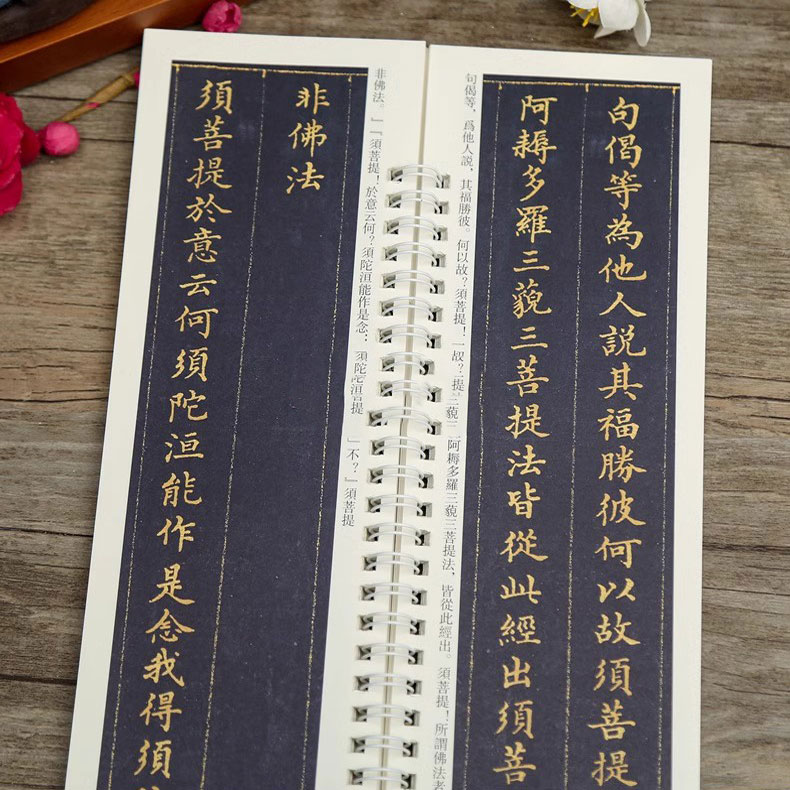 句偈等為他人說其福勝彼何以故須菩提
阿耨多羅三藐三菩提法皆從此經出須菩
句偈等，爲他人説，其福勝彼。何以故？須菩提！一 阿耨多羅三藐三菩提法，皆從此經出。須菩提！所謂佛法者
非佛法。」「須菩提！於意云何？須陀洹能作是念： 須陀洹 」不？」須菩提
非佛法
須菩提於意云何須陀洹能作是念我得須